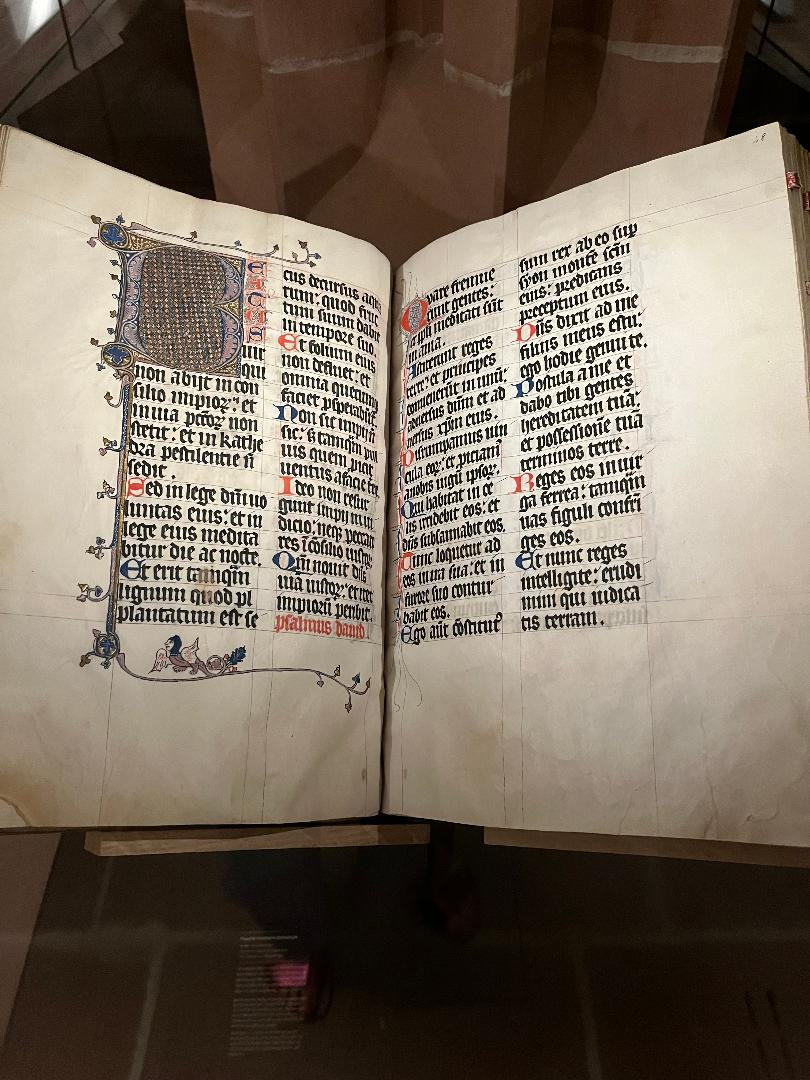 B
EATUS
uir
qui
non abijt in con
silio impiorum: et
in uia pctor non
stetit: et in kathe
dra pestilentie n
sedit.
Sed in lege dni uo
luntas eius: et in
lege eius medita
bitur die ac nocte.
Et erit tamqm
lignum quod pl
plantatum est se
cus decursus aqua
rum: quod fruc
tum suum dabit
in tempore suo.
Et folium eius
non defluet: et
omnia quecumq
faciet pspabuntr
Non sic impij n
sic: s tamqm pul
uis quem picit
uentus a facie tre
Ideo non resur
gunt impij in iu
dicio: neqz peccato
res i cosilio iustor.
Qm nouit dns
uia iustor: et iter
impioru peribit.
psalmus dauid
Quare fremue
runt gentes:
et ppli meditati sut
inania.
Astiterunt reges
terre: et principes
conuenerut in unu:
aduersus dnm et ad
uersus xpm eius.
Dirumpamus uin
cula eor: et piciam
a nobis iugu ipsor.
Qui habitat in ce
lis irridebit eos: et
dns subsannabit eos.
Tunc loquetur ad
eos in ira sua: et in
furore suo contur
babit eos.
Ego aut costitut
sum rex ab eo sup
syon monte scm
eius: predicans
preceptum eius.
Dns dicit ad me
filius meus es tu:
ego hodie genui te.
Postula a me et
dabo tibi gentes
hereditatem tua:
et possessione tua
terminos terre.
Reges eos in uir
ga ferrea: tamqm
uas figuli confri
ges eos.
Et nunc reges
intelligite: erudi
mini qui iudica
tis terram.